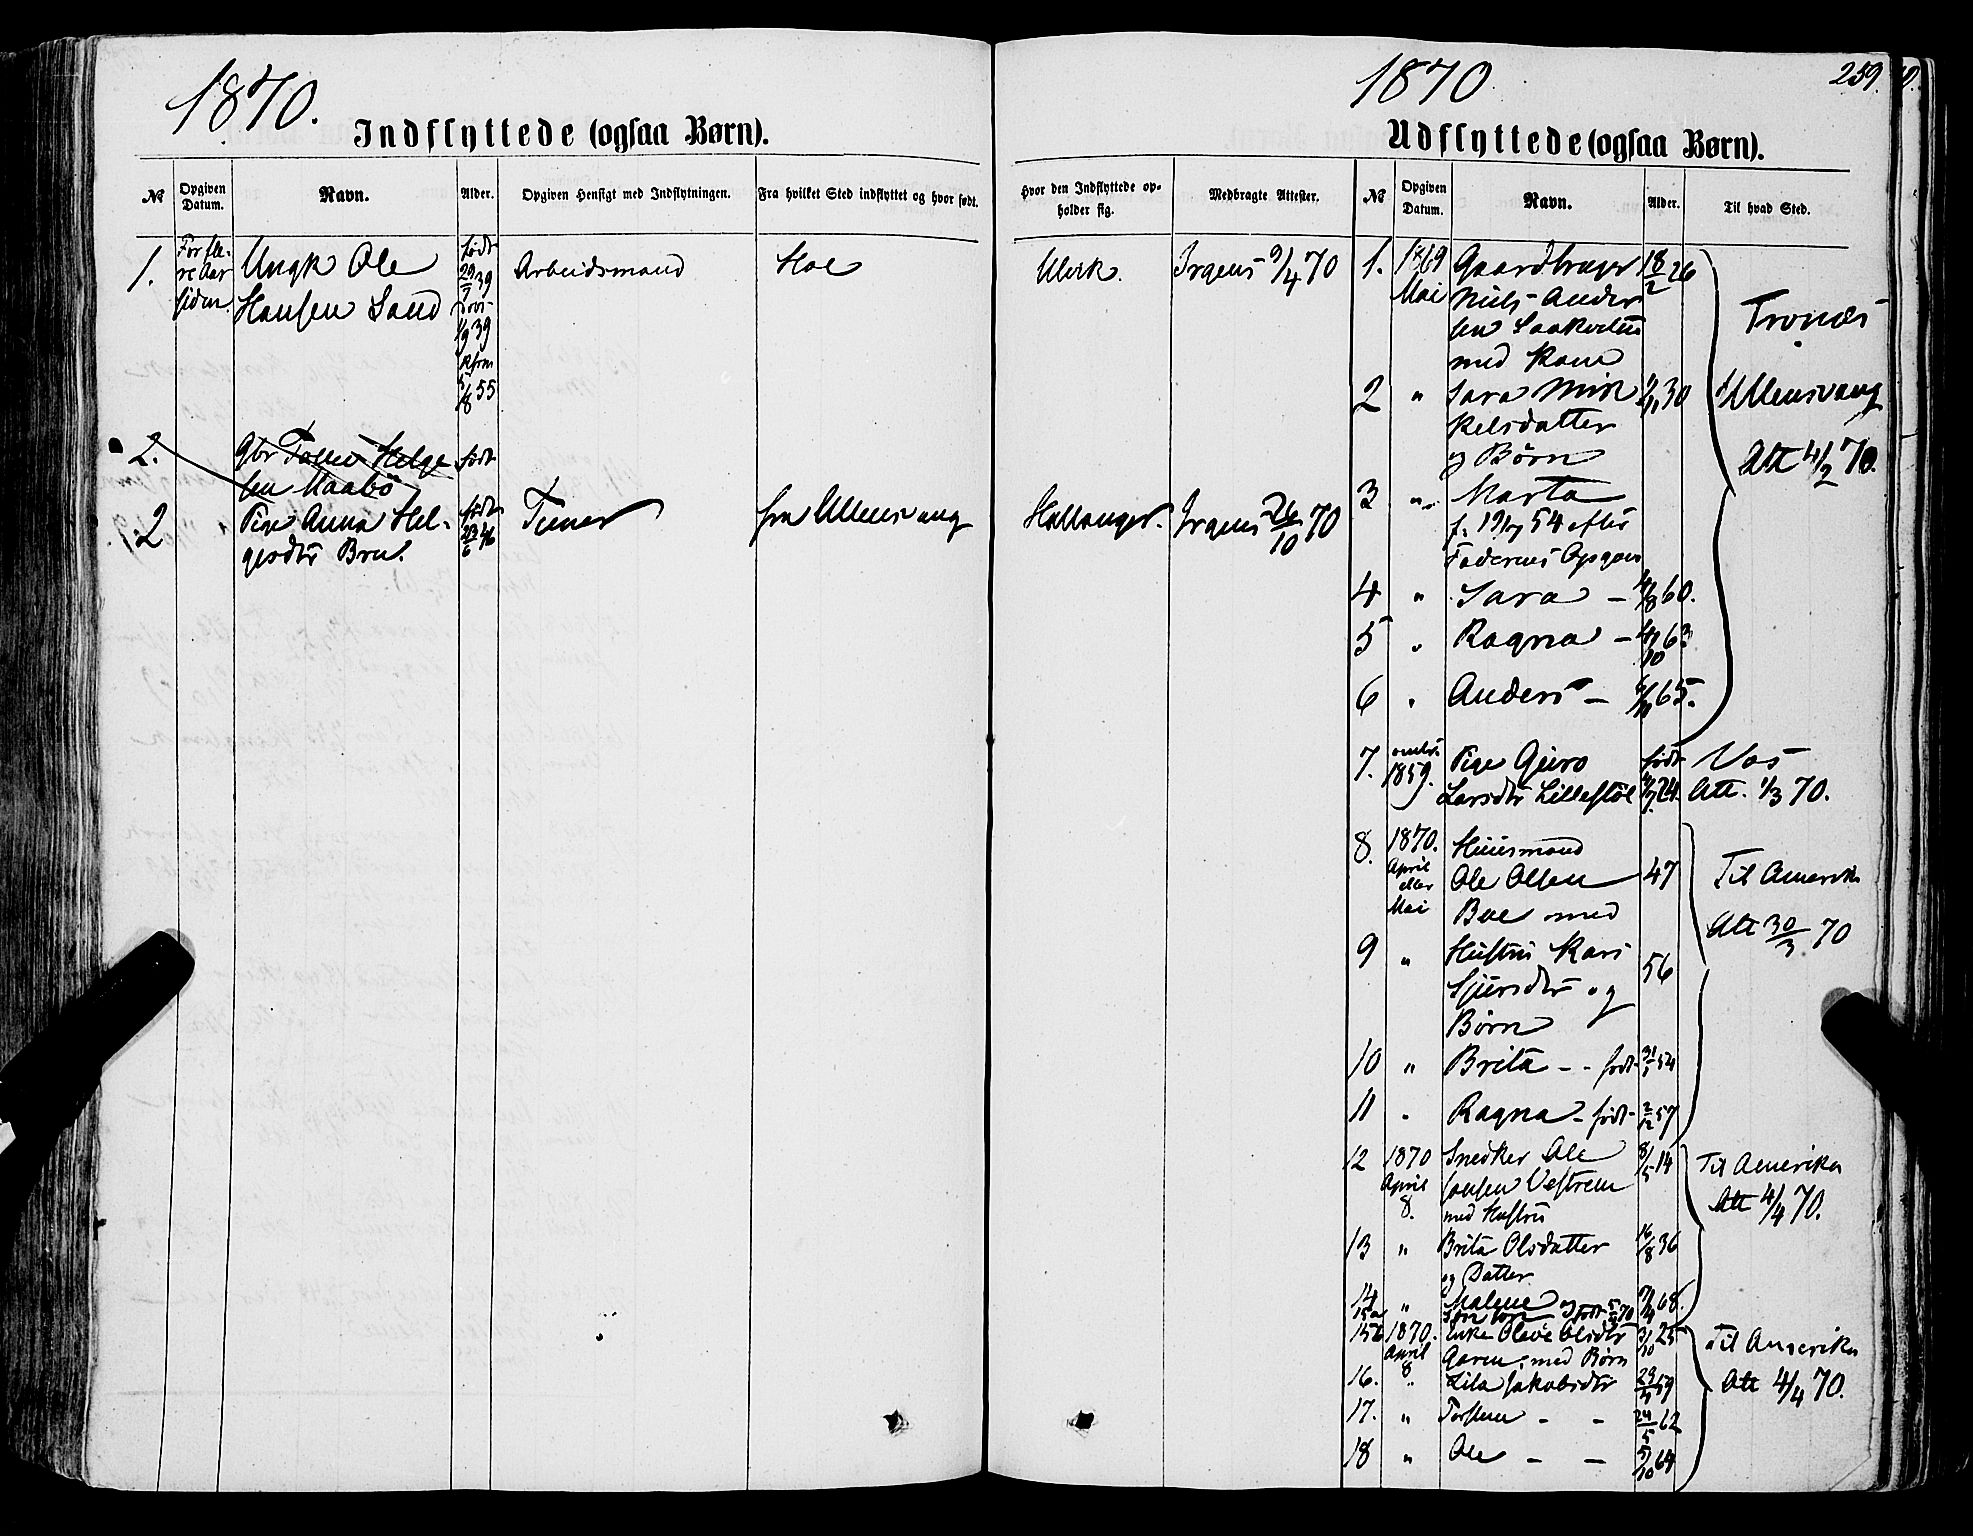 1870.
Indflyttede (ogsaa Børn).
№
Opgiven Datum.
Navn.
Alder.
Opgiven Hensigt med Indflytningen.
Fra hvilket Sted indflyttet og hvor født.
1.
For fle-
re Aar
siden.
Ungk Ole
Hansen Sand
født
29/7 39
1/9 39
5/8 55
Arbeidsmand
Hol
2.
Gbr Tollev Helge
sen Maabö
født
2
Pige Anna Hel-
gesdtr Bru.
født
23/6 46
Tjener
fra Ullensvang
1870
259.
Udflyttede (ogsaa Børn).
Hvor den Indflyttede op-
holder sig.
Medbragte Attester.
№
Opgiven Datum.
Navn.
Alder.
Til hvad Sted.
Ulvik.
Irgens 9/4 70
Hallanger.
Irgens 26/10 70
1.
1869
Mai
Gaardbruger
Niels Ander
sen
med Kone
18/2 26
2
"
Sara Mik
kelsdatter
og Børn
30
3
"
Marta
f. 54 efter
Faderens Opgave
4
"
Sara –
4/8 60.
5
"
Ragna –
4/10 63
6
"
Anders –
65.
Tronæs
i Ullensvang
Att 4/2 70.
7.
1859.
Pige Guro
Larsdtr Lillestøl
født
24.
Vos
Att. 1/3 70.
8.
1870.
April
eller
Mai
Huusmand
Ole Olsen
Bue med
47
9
"
Hustru Kari
Sjursdtr og
Børn
56
10
"
Brita - - født
54
11
"
Ragna - født
2/12 57
Til Amerika
Att 30/3 70
12
1870
April
8.
Snedker Ole
Jonsen Vestrem
med Hustru
8/5 14
13
"
Brita Olsdatter
og Datter
16/8 36
14
"
Malene og
68.
15a
Søn født 70
Til Amerika
Att 4/4 70.
15b
1870.
April
8
Enke Olsdtr
Garen, med Børn
3/10 25
16.
"
Lila Jakobsdtr
59
17.
"
Torsten – –
24/5 62
18
"
Ole – –
5/10 64
Til Amerika
Att 4/4 70.